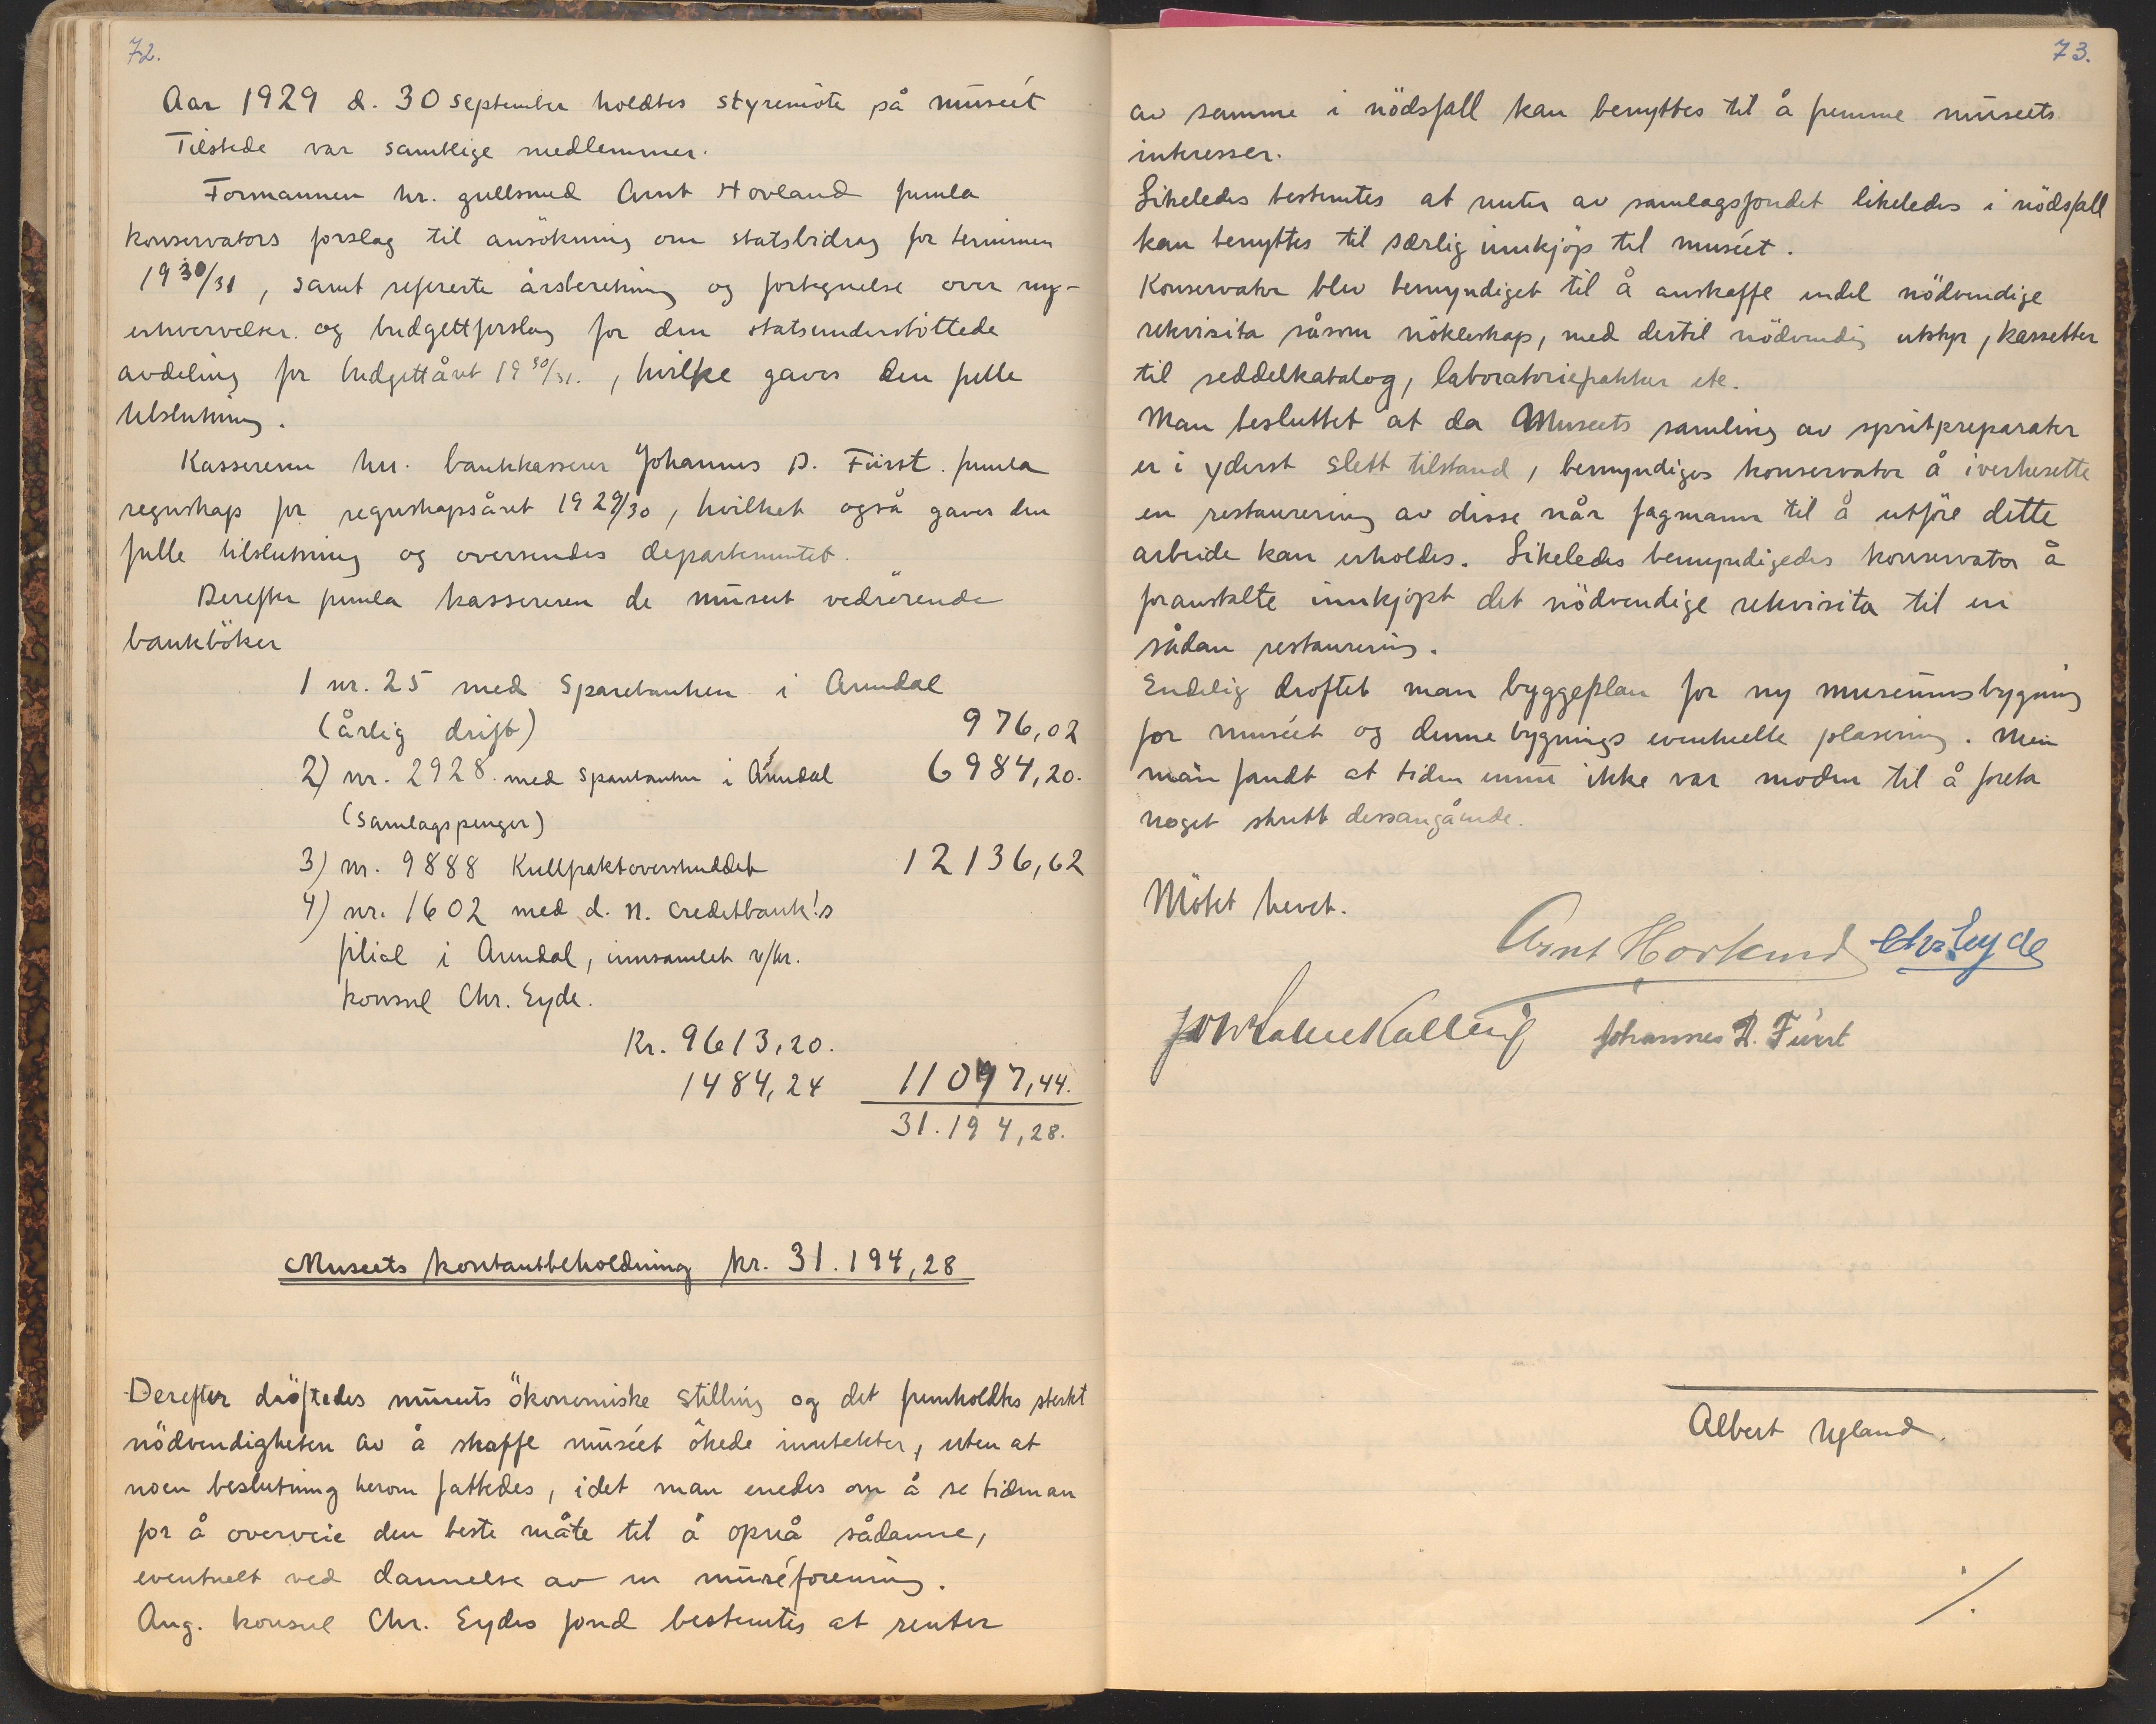 72.
Aar 1929 d. 30 september holdtes styremöte på muséet
Tilstede var samtlige medlemmer.
Formannen hr. gullsmed Arnt Hovland fremla
konservators forslag til ansökning om statsbidrag for terminen
1930/31, samt refererte årsberetning og fortegnelse over ny-
erhvervelser. og budgettforslag for den statsunderstöttede
avdeling for budgettåret 1930/31., hvilke gaves den fulle
tilslutning.
Kassereren hr. bankkasserer Johannes D. Fürst. fremla
regnskap for regnskapsåret 1929/30, hvilket også gaves den
fulle tilslutning og oversendes departementet.
Derefter fremla kassereren de museet vedrörende
bankböker
1 nr. 25 med Sparebanken i Arendal
(årlig drift) 976,02
2) nr. 2928. med Sparebanken i Arendal 6984,20.
(Samlagspenger)
3) nr. 9888 Kullfraktoverskuddet 12136,62
4) nr. 1602 med d. n. Creditbank's
filial i Arendal, innsamlet v/hr.
konsul Chr. Eyde.
Kr. 9613,20.
1484,24 11097,44.
31.194,28.
Museets kontantbeholdning kr. 31.194,28
Derefter dröftedes museets ökonomiske stilling og det fremholdtes sterkt
nödvendigheten av å skaffe muséet ökede inntekter, uten at
noen beslutning herom fattedes, idet man enedes om å se tiden an
for å overveie den beste måte til å opnå sådanne,
eventuelt ved dannelse av en muséforening.
Ang. konsul Chr. Eydes fond bestemtes at renter
73.
av samme i nödsfall kan benyttes til å fremme museets
interesser.
Likeledes bestemtes at renter av samlagsfondet likeledes i nödsfall
kan benyttes til særlig innkjöp til muséet.
Konservator blev bemyndiget til å anskaffe endel nödvendige
rekvisita såsom nökleskap, med dertil nödvendig utstyr, kassetter
til seddelkatalog, laboratoriefrakker etc.
Man besluttet at da Museets samling av spritpreparater
er i yderst slett tilstand, bemyndiges konservator å iverksette
en restaurering av disse når fagmann til å utföre dette
arbeide kan erholdes. Likeledes bemyndigedes konservator å
foranstalte innkjöpt det nödvendige rekvisita til en
sådan restaurering.
Endelig droftet man byggeplan for ny museumsbygning
for muséet og denne bygnings eventuelle plasering. Men
man fandt at tiden ennu ikke var moden til å foreta
noget skritt dessangående.
Mötet hevet.
Arnt Hovland Chr. Eyde
Johannes D. Fürst
Albert Ugland.
./.